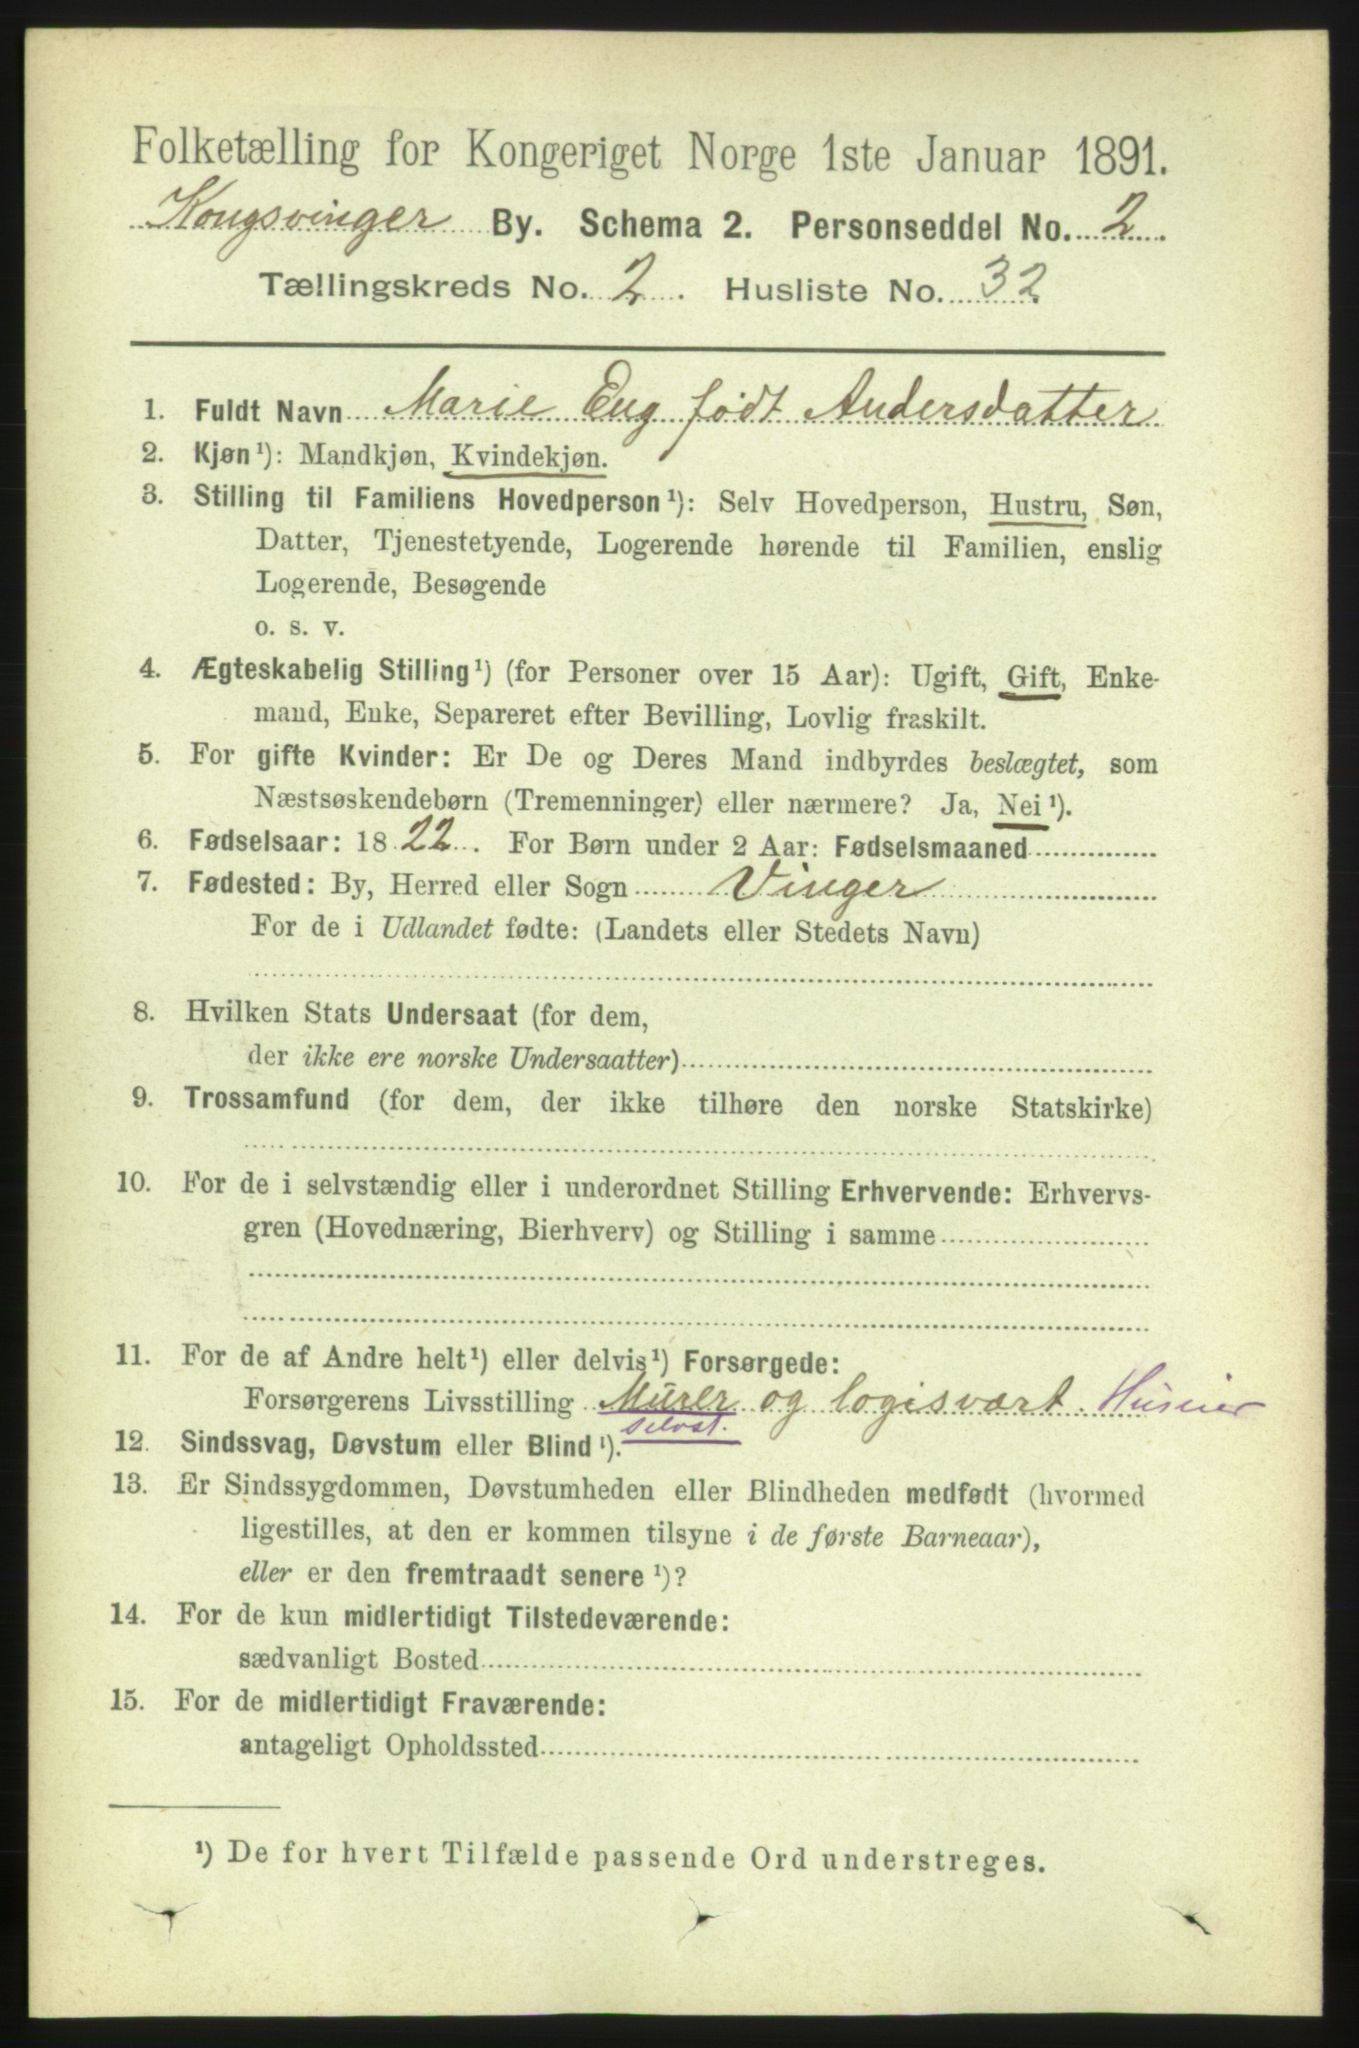 Folketælling for Kongeriget Norge 1ste Januar 1891.
Kongsvinger By. Schema 2. Personseddel No. 2.
Tællingskreds No. 2. Husliste No. 32
1. Fuldt Navn Marie Eng født Andersdatter
2. Kjøn¹): Mandkjøn, Kvindekjøn.
3. Stilling til Familiens Hovedperson¹): Selv Hovedperson, Hustru, Søn,
Datter, Tjenestetyende, Logerende hørende til Familien, enslig
Logerende, Besøgende
o. s. v.
4. Ægteskabelig Stilling¹) (for Personer over 15 Aar): Ugift, Gift, Enke-
mand, Enke, Separeret efter Bevilling, Lovlig fraskilt.
5. For gifte Kvinder: Er De og Deres Mand indbyrdes beslægtet, som
Næstsøskendebørn (Tremenninger) eller nærmere? Ja, Nei¹).
6. Fødselsaar: 1822. For Børn under 2 Aar: Fødselsmaaned
7. Fødested: By, Herred eller Sogn Vinger
For de i Udlandet fødte: (Landets eller Stedets Navn)
8. Hvilken Stats Undersaat (for dem,
der ikke ere norske Undersaatter)
9. Trossamfund (for dem, der ikke tilhøre den norske Statskirke)
10. For de i selvstændig eller i underordnet Stilling Erhvervende: Erhvervs-
gren (Hovednæring, Bierhverv) og Stilling i samme
11. For de af Andre helt¹) eller delvis¹) Forsørgede:
Forsørgerens Livsstilling Murer og logisvært. Huseier
selvst.
12. Sindssvag, Døvstum eller Blind¹).
13. Er Sindssygdommen, Døvstumheden eller Blindheden medfødt (hvormed
ligestilles, at den er kommen tilsyne i de første Barneaar),
eller er den fremtraadt senere¹)?
14. For de kun midlertidigt Tilstedeværende:
sædvanligt Bosted
15. For de midlertidigt Fraværende:
antageligt Opholdssted
¹) De for hvert Tilfælde passende Ord understreges.